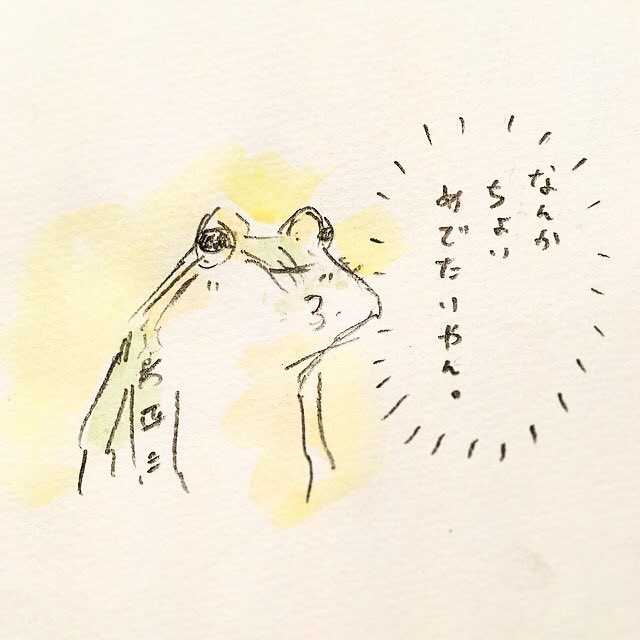 なんか
ちょい
めでたいやん。